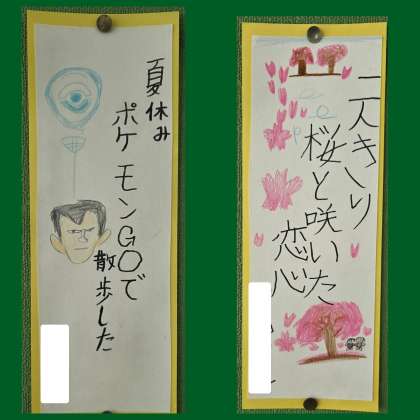 夏休み
ポケモンGOで
散歩した
二人きり
桜と咲いた
恋心